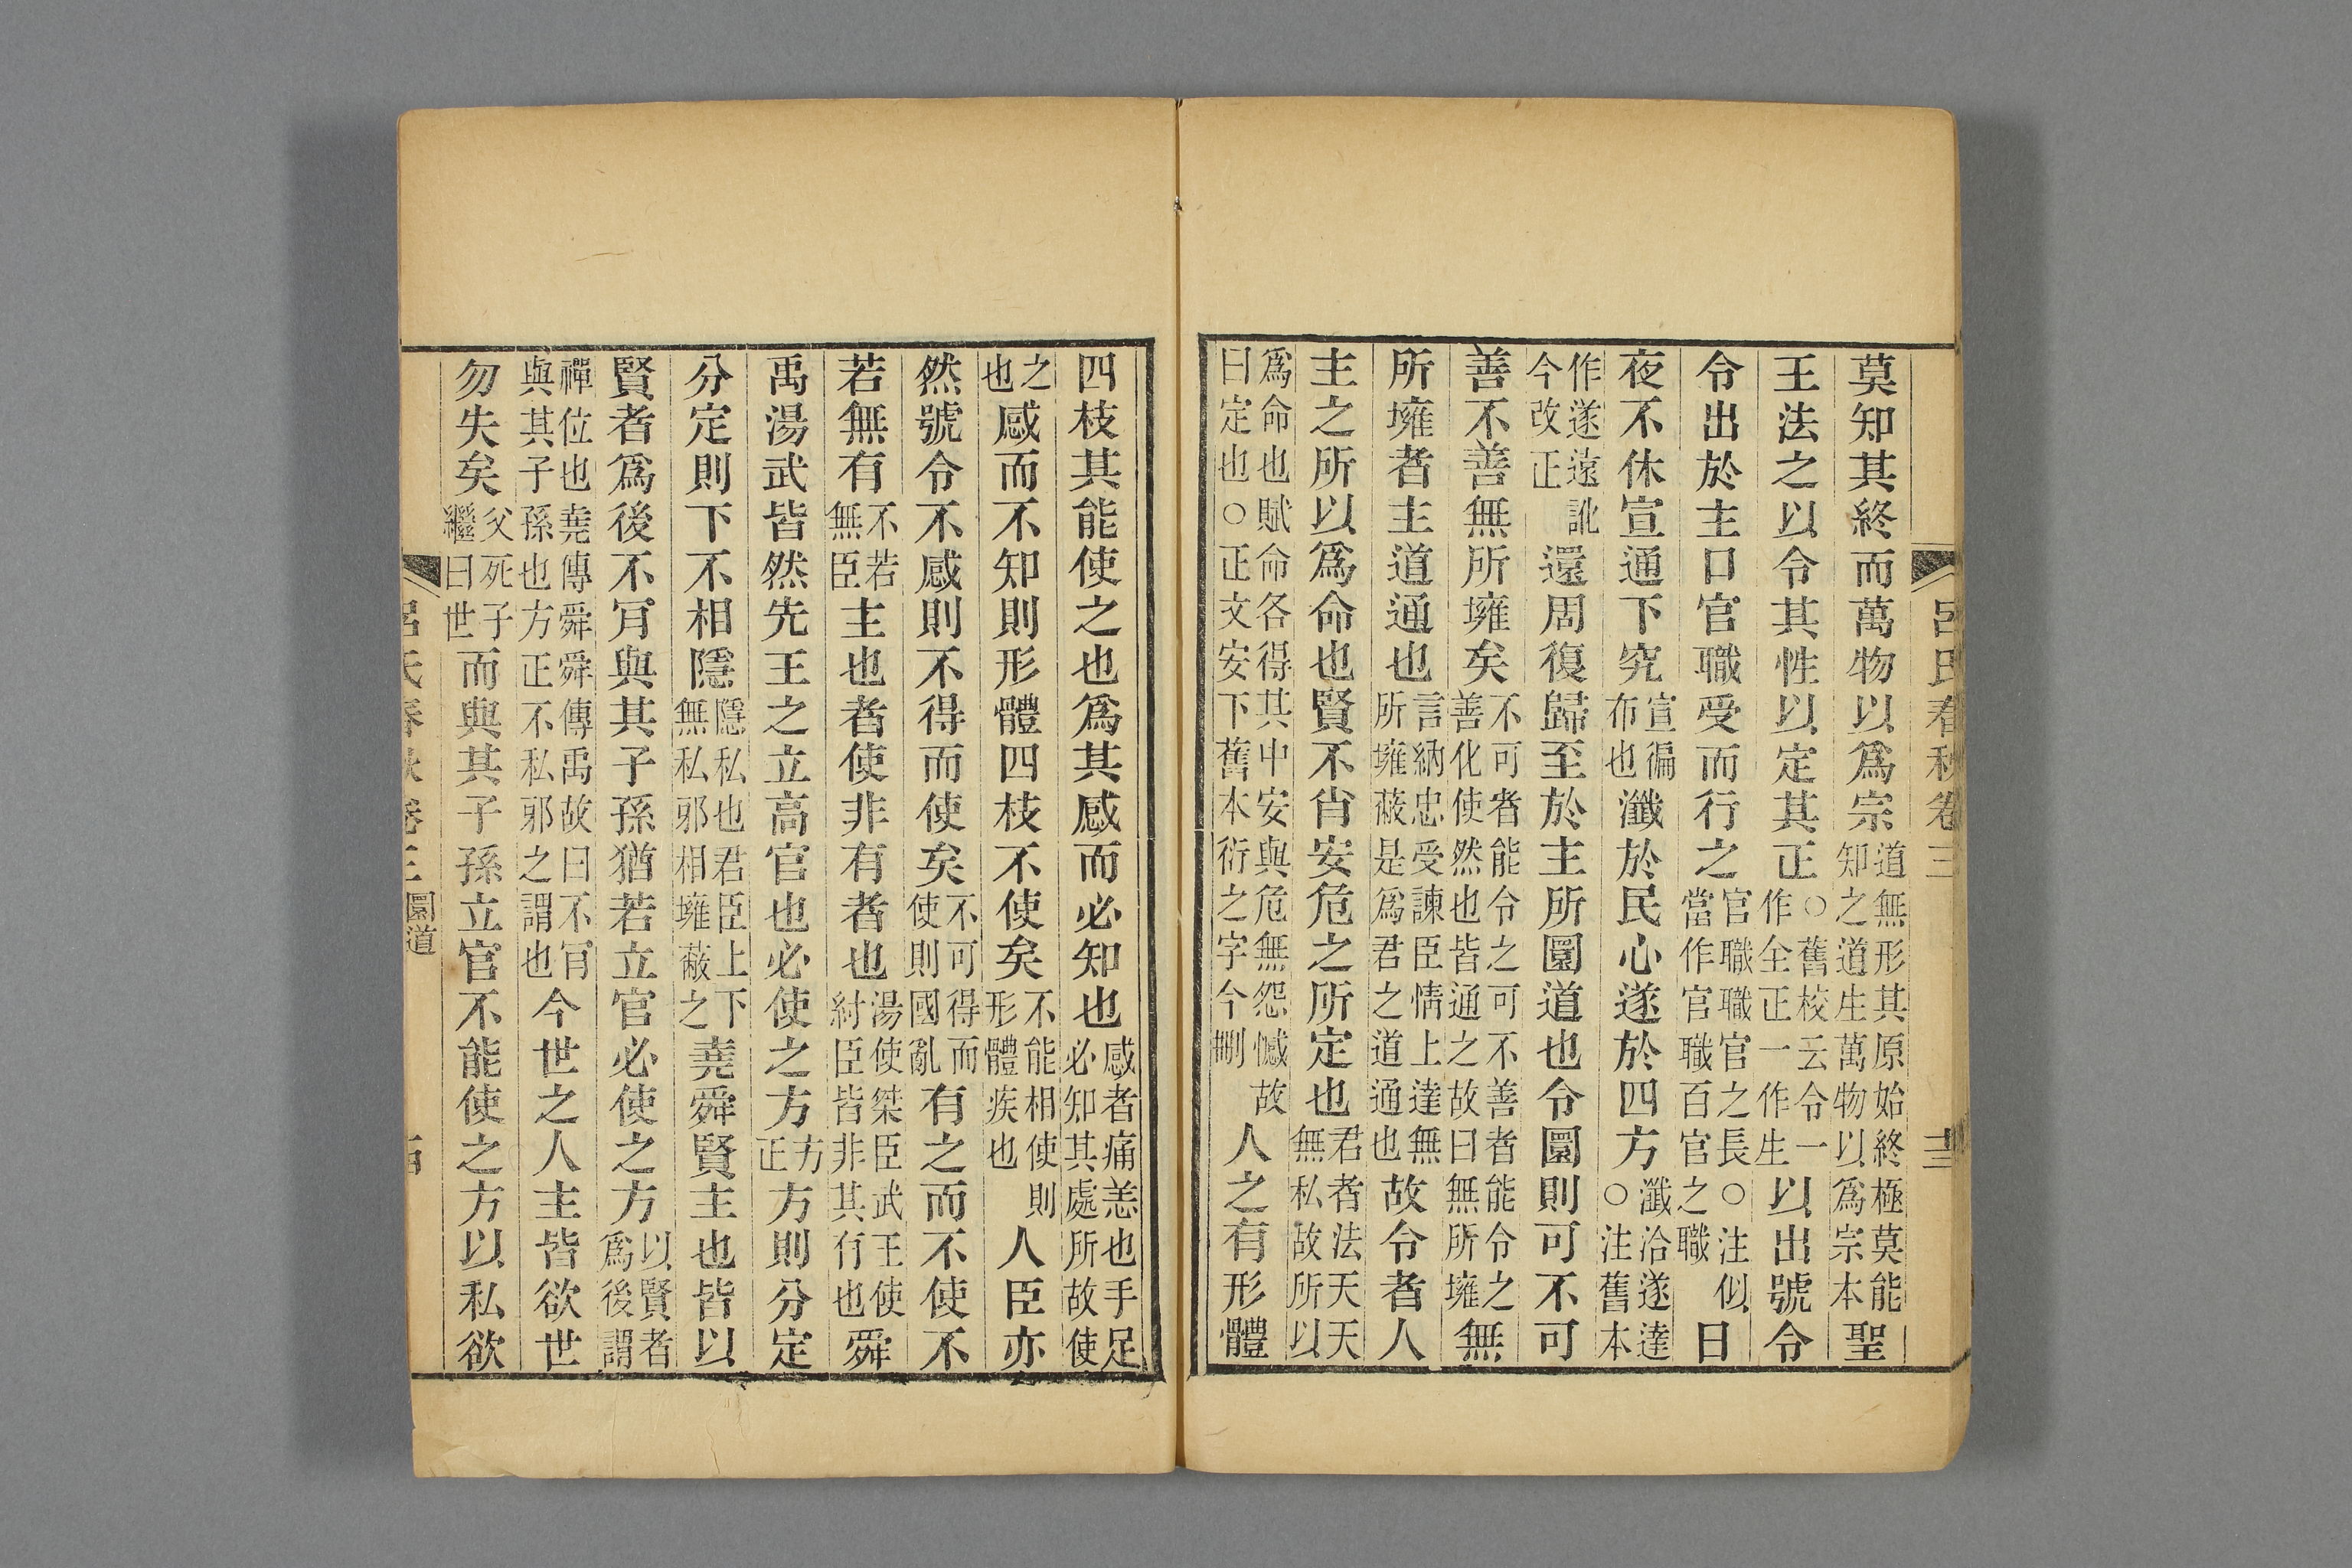 呂氏春秋卷三 十三
莫知其終而萬物以爲宗道無形其原始終極莫能知之道生萬物以爲宗本聖
王法之以令其性以定其正○舊校云令一作全正一作生以出號令
令出於主口官職受而行之官職職官之長○注似當作官職百官之職日
夜不休宣通下究宣徧布也瀸於民心遂於四方瀸洽遂達○注舊本
作遂遠訛今改正還周復歸至於主所圜道也令圜則可不可
善不善無所壅矣不可者能令之可不善者能令之善化使然也皆通之故曰無所壅無
所壅者主道通也言納忠受諫臣情上達無所壅蔽是爲君之道通也故令者人
主之所以爲命也賢不肖安危之所定也君者法天天無私故所以
爲命也賦命各得其中安與危無怨憾故曰定也○正文安下舊本衍之字今刪人之有形體
四枝其能使之也爲其感而必知也感者痛恙也手足必知其處所故使
之也感而不知則形體四枝不使矣不能相使則形體疾也人臣亦
然號令不感則不得而使矣不可得而使則國亂有之而不使不
若無有不若無臣主也者使非有者也湯使桀臣武王使紂臣皆非其有也舜
禹湯武皆然先王之立高官也必使之方方正方則分定
分定則下不相隱隱私也君臣上下無私邪相壅蔽之堯舜賢主也皆以
賢者爲後不肎與其子孫猶若立官必使之方以賢者爲後謂
禪位也堯傳舜舜傳禹故曰不肎與其子孫也方正不私邪之謂也今世之人主皆欲世
勿失矣父死子繼曰世而與其子孫立官不能使之方以私欲
呂氏春秋卷三 圜道